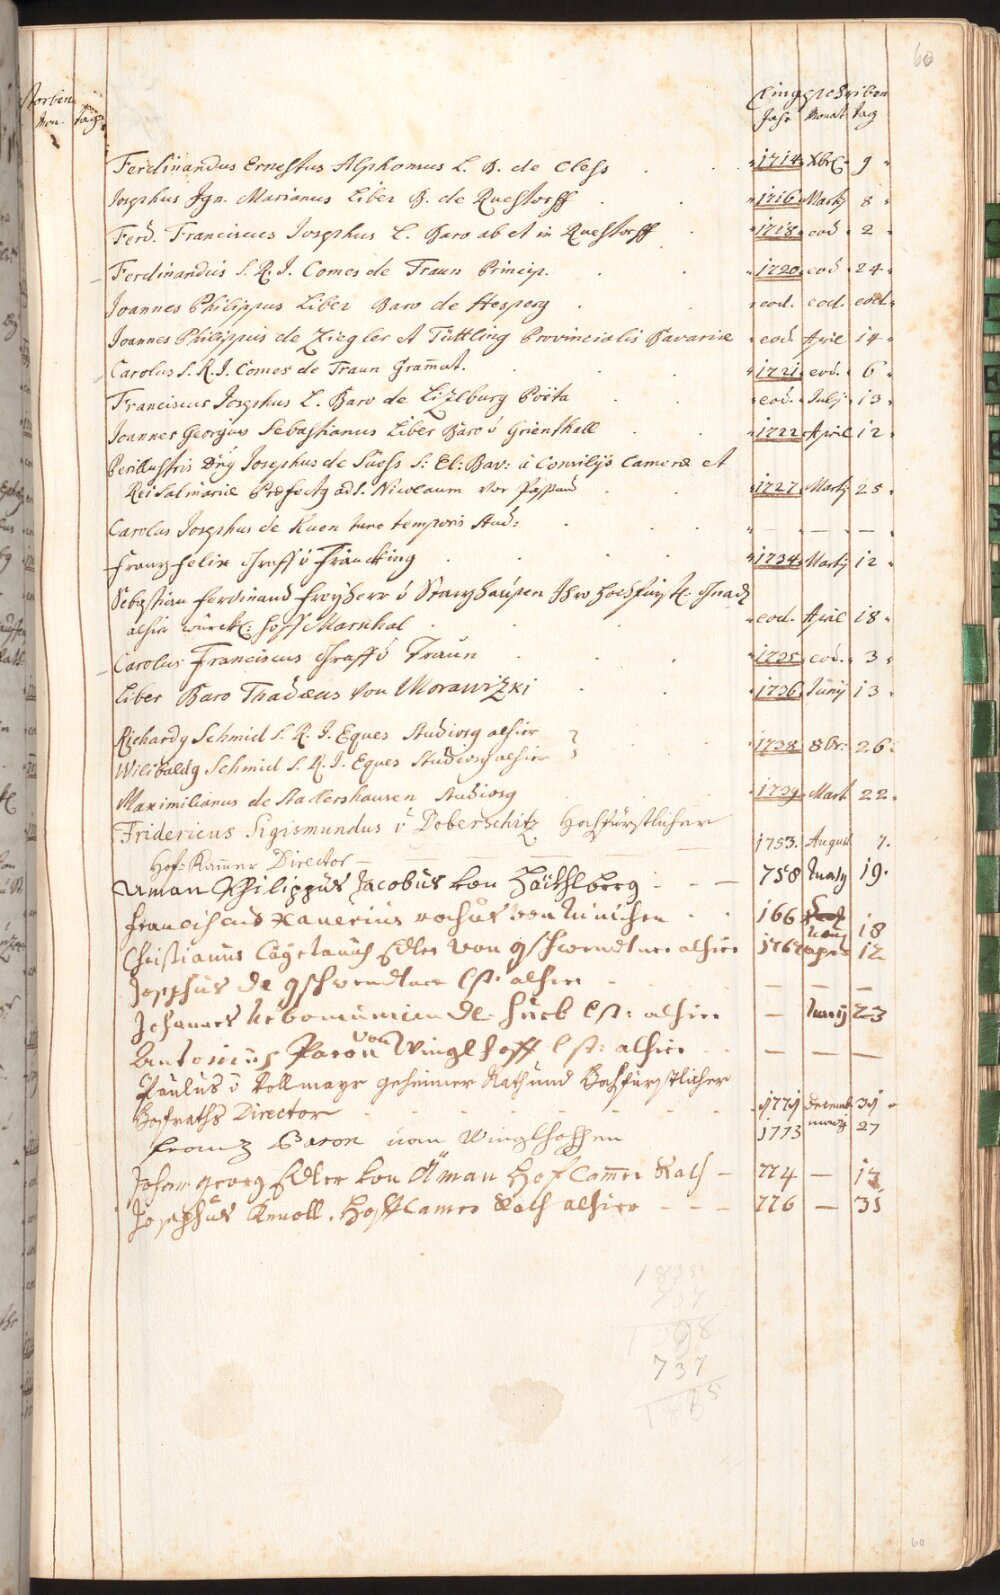 60
storben Eingeschriben
Mon. tag Jahr Monat tag
Ferdinandus Ernestus Alphonsus L. B. de Cless . . 1714 Xbr. 9
Josephus Ign. Marianus Liber B. de Ruestorff . . 1716 Martj 8
Ferd. Franciscus Josephus L. Baro ab et in Ruestorff . 1718 eod 2
Ferdinandus S. R. I. Comes de Traun Princip. . . 1720 eod 24
Joannes Philippus Liber Baro de Hesperg . . eod. eod. eod.
Joannes Philippus de Ziegler et Tüttling Provincialis Bavariae eod. April 14
Carolus S. R. I. Comes de Traun Grammat. . . 1721 eod. 6
Franciscus Josephus L. Baro de Lizlburg Poëta . . eod. Julj 13
Joannes Georgius Sebastianus Liber Baro ô Grienthall . . 1722 April 12
Perillustris Dnq Josephus de S: El: Bav: â Consilijs Camerae et
Rei Salinariae Praefectq ad S. Nicolaum vor Passau . . 1727 Martj 25
Carolus Josephus de Kuen tunc temporis Stud: . . — — —
Franz Felix Graff ô Francking . . 1734 Martj 12
Sebastian Ferdinand Freyherr ô Ihro Hochfürstl: Gnad
alhier würckl: Hoff Marschal . . eod. April 18
Carolus Franciscus Graff ô Traun . . 1735 eod. 3
Liber Baro Thadaeus von Morawizki . . 1736 Junij 13
Richardq Schmid S. R. I. Eques Studiosq alhier
Wilibaldq Schmid S. R. I. Eques Studiosq alhier } . . 1738 8br: 26
Maximilianus de Stadlershausen Studiosq . . 1739 Mart 22
Fridericus Sigismundus ô Doberschitz Hochfürstlicher
Hof-Kammer Director — — — 1753. August 7.
Philippus Jacobus von — — 758 19.
Franciscus Xaverius von . . 166 18
Christianus Cajetanus Edler von gschwendtner alhier 1767 apr 12
Josephus de gschwendtner alhier . . — — —
Johannes de Hueb alhier — Junij 23
Antonius Baron von Winglhoff alhier . . — — —
Paulus ô Vollmayr geheimer Rath und Hochfürstlicher
Hofraths Director . . 1771 Decemb 31
Franz Baron von Winglhoffen 1773 27
Johann Georg Edler von Äman Hof Cammer Rath — 774 — 17
Josephus Knoll. Hoff Camer Rath alhier — — — 776 — 31
737
60